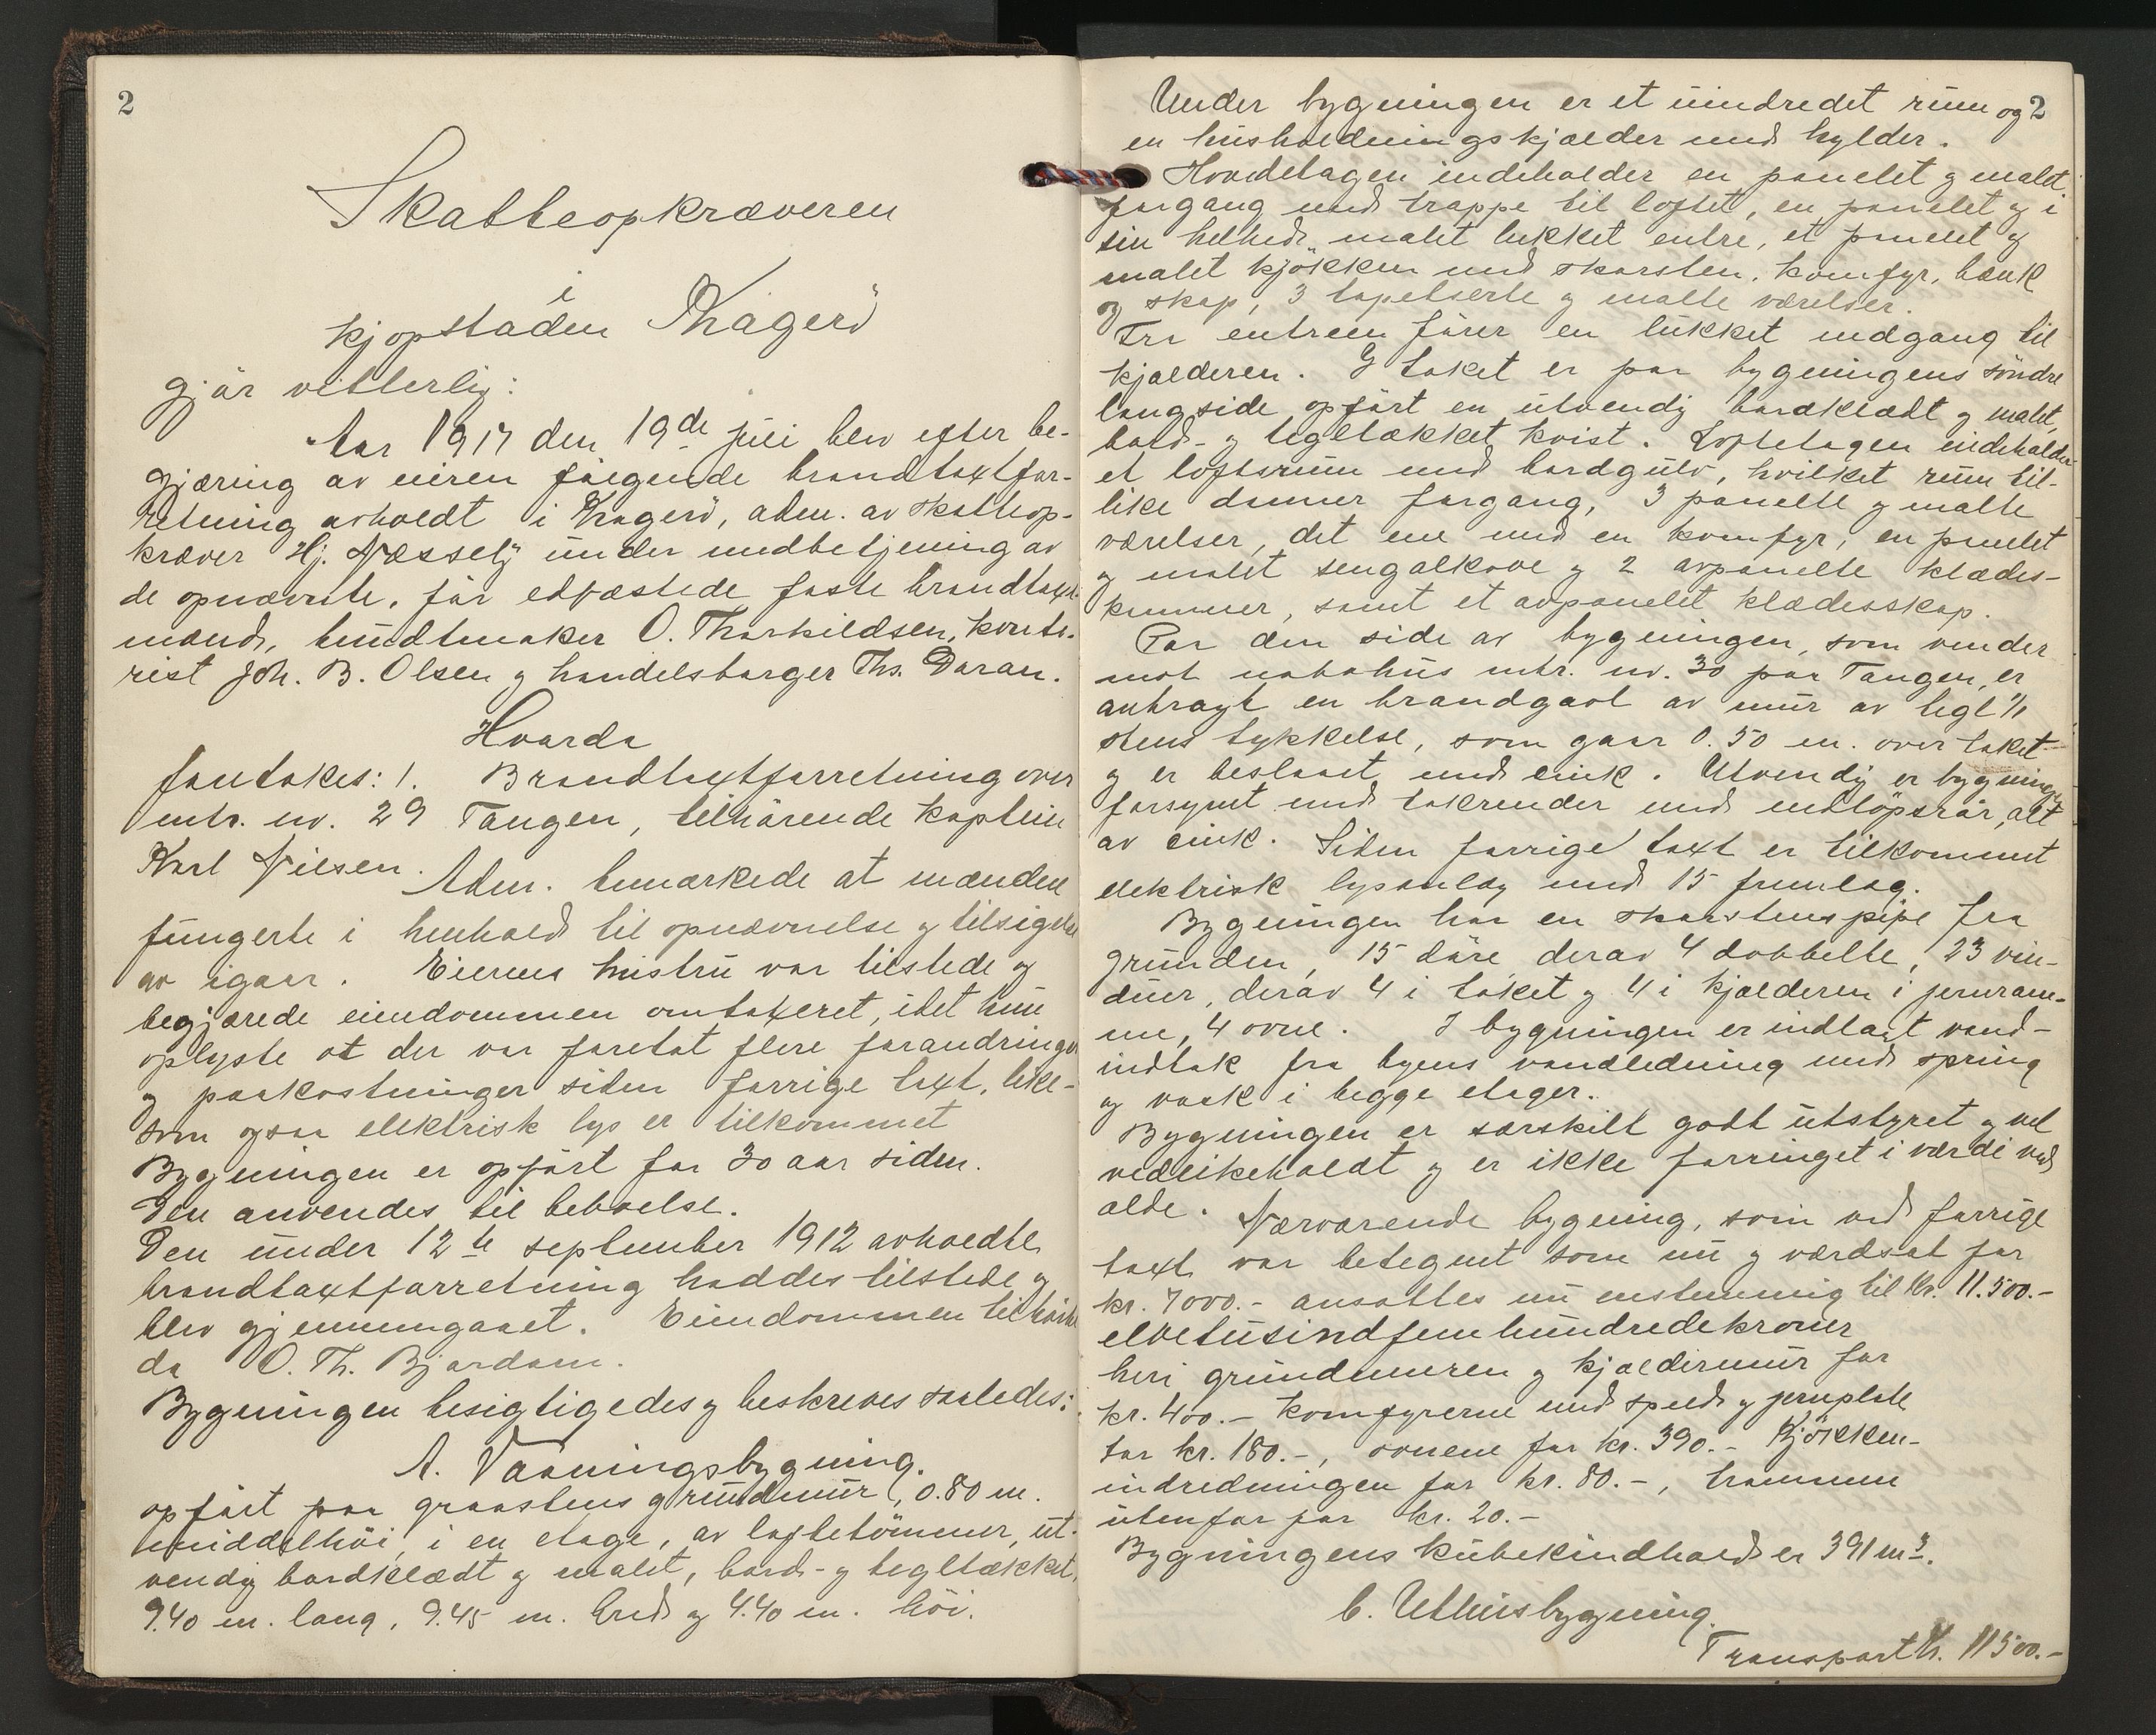 2
Skatteopkræveren
i
kjøpstaden Kragerø
gjør vitterlig:
Aar 1917 den 19de juli blev efter be-
gjæring av eieren følgende brandtaxtfor-
retning avholdt i Kragerø, adm. av skatteop-
kræver Hj. Næsseth under medbetjening av
de opnævnte, før edfæstede faste brandtaxt-
mænd, bundtmaker O. Thorkildsen, konto-
rist Joh. B. Olsen og handelsborger Ths. Daran.
Hvorda
foretokes: 1. Brandtaxtforretning over
mtr. nr. 29 Tangen, tilhørende kaptein
Karl Nilsen.
Adm. bemærkede at mændene
fungerte i henhold til opnævnelse og tilsigelse
av igaar. Eierens hustru var tilstede og
begjærede eiendommen omtaxeret, idet hun
oplyste at der var foretat flere forandringer
og paakostninger siden forrige taxt, like-
som ogsaa elektrisk lys er tilkommet
Bygningen er opført for 30 aar siden.
Den anvendes til beboelse.
Den under 12te september 1912 avholdte
brandtaxtforretning haddes tilstede og
blev gjennemgaaet. Eiendommen tilhørte
da O. Th. Bjordam.
Bygningen besigtigedes og beskreves saaledes:
A. Vaaningsbygning.
opført paa graastens grundmur, 0.80 m.
middelhøi, i en etage, av laftetømmer, ut-
vendig bordklædt og malet, bord- og tegltækket,
9.40 m. lang, 9.45 m. bred og 4.40 m. høi.
2
Under bygningen er et uindredet rum og
en husholdningskjælder med hylder.
Hovedetagen indeholder en panelet og malet
forgang med trappe til loftet, en panelet og i
sin helhed malet lukket entre, et panelet og
malet kjøkken med skorsten, komfyr, bænk
og skap, 3 tapetserte og malte værelser.
Fra entreen fører en lukket nedgang til
kjælderen. I taket er paa bygningens søndre
langside opført en utvendig bordklædt og malet,
bord- og tegltækket kvist. Loftetagen indeholder
et loftsrum med bordgulv, hvilket rum til-
like danner forgang, 3 panelte og malte
værelser, det ene med en komfyr, en panelet
og malet sengalkove og 2 avpanelte klædes-
kammer, samt et avpanelet klædesskap.
Paa den side av bygningen, som vender
mot nabohus mtr. nr. 30 paa Tangen, er
anbragt en brandgavl av mur av tegl 1/1
stens tykkelse, som gaar 0.50 m. over taket
og er beslaaet med zink. Utvendig er bygningen
forsynt med takrender med nedløpsrør, alt
av zink. Siden forrige taxt er tilkommet
elektrisk lysanlæg med 15 fremlæg.
Bygningen har en skorstenspipe fra
grunden, 15 døre derav 4 dobbelte, 23 vin-
duer, derav 4 i taket og 4 i kjælderen i jernram-
me, 4 ovne. I bygningen er indlagt vand-
indtak fra byens vandledning med spring
og vask i begge etager.
Bygningen er særskilt godt utstyret og vel
vedlikeholdt og er ikke forringet i værdi ved
ælde. Nærværende bygning, som ved forrige
taxt var betegnet som nu og værdsat for
kr. 7000.- ansattes nu enstemmig til kr. 11.500.-
elvetusindfemhundredekroner
heri grundmuren og kjældermur for
kr. 400.- komfyrerne med spjeld og jernplate
for kr. 180.-, ovnene for kr. 390.- kjøkken-
indredningen for kr. 80.-, trammen
utenfor for kr. 20.-
Bygningens kubikindhold er 391 m3.
b. Uthusbygning.
Transport kr. 11500.-